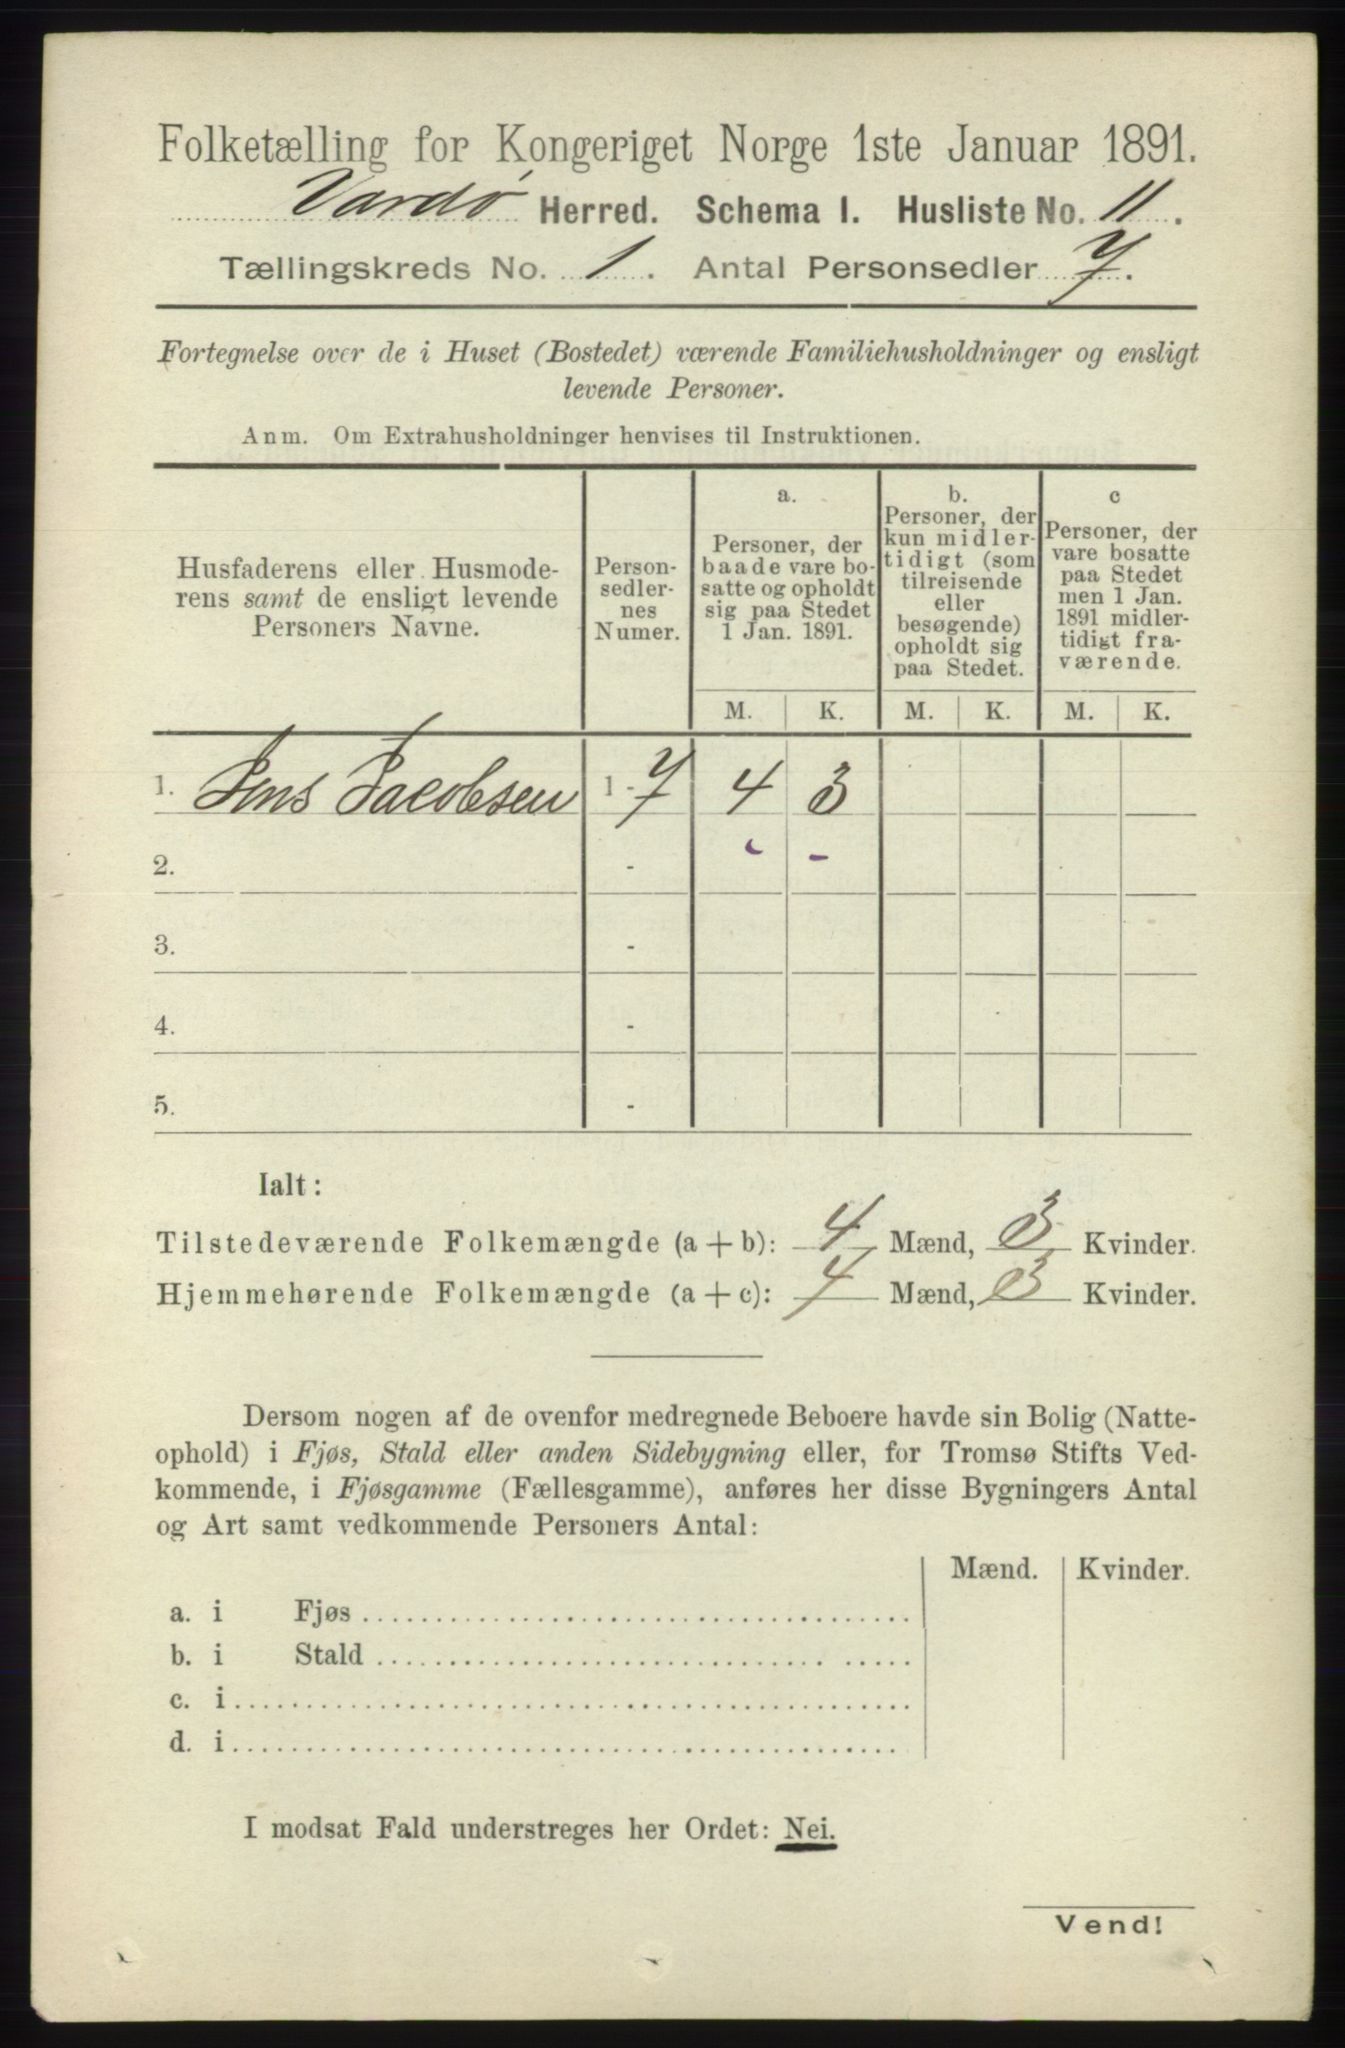 Folketælling for Kongeriget Norge 1ste Januar 1891.
Vardø Herred. Schema I. Husliste No. 11.
Tællingskreds No. 1. Antal Personsedler 7.
Fortegnelse over de i Huset (Bostedet) værende Familiehusholdninger og ensligt
levende Personer.
Anm. Om Extrahusholdninger henvises til Instruktionen.
Husfaderens eller Husmode-
rens samt de ensligt levende
Personers Navne.
Person-
sedler-
nes
Numer.
a.
Personer, der
baade vare bo-
satte og opholdt
sig paa Stedet
1 Jan. 1891.
b.
Personer, der
kun midler-
tidigt (som
tilreisende
eller
besøgende)
opholdt sig
paa Stedet.
c
Personer, der
vare bosatte
paa Stedet
men 1 Jan.
1891 midler-
tidigt fra-
værende.
M. K. M. K. M. K.
1. Jens Jacobsen 1 - 7 4 3
2. -
3. -
4. -
5. -
Ialt:
Tilstedeværende Folkemængde (a + b): 4 Mænd, 3 Kvinder.
Hjemmehørende Folkemængde (a + c): 4 Mænd, 3 Kvinder.
Dersom nogen af de ovenfor medregnede Beboere havde sin Bolig (Natte-
ophold) i Fjøs, Stald eller anden Sidebygning eller, for Tromsø Stifts Ved-
kommende, i Fjøsgamme (Fællesgamme), anføres her disse Bygningers Antal
og Art samt vedkommende Personers Antal:
Mænd. Kvinder.
a. i Fjøs
b. i Stald
c. i
d. i
I modsat Fald understreges her Ordet: Nei.
Vend!